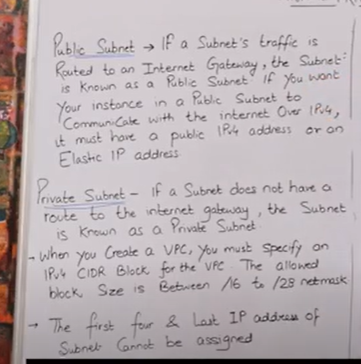 Public Subnet → IF a Subnet's traffic is
Routed to an Internet Gateway, the Subnet
is Known as a Public Subnet. If You want
Your instance in a Public Subnet to
Communicate with the internet Over IPv4,
it must have a public IPv4 address or an
Elastic IP address.
Private Subnet - If a Subnet does not have a
route to the internet gateway, the Subnet
is Known as a Private Subnet.
- When you Create a VPC, You must Specify an
IPv4 CIDR Block for the VPC. The allowed
block Size is Between /16 to /28 netmask
→ The first four & Last IP address of
Subnet Cannot be assigned